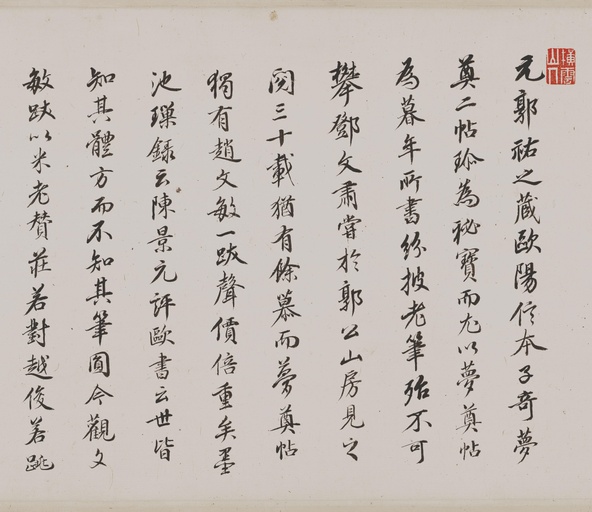 元郭祐之蔵歐陽信本子奇夢
奠二帖珎為秘寶而尤以夢奠帖
為暮年所書紛披老筆殆不可
攀鄧文肅嘗於郭公山房見之
閱三十載猶有餘慕而夢奠帖
獨有趙文敏一跋聲價倍重矣墨
池璅録云陳景元評歐書云世皆
知其體方而不知其筆圓今觀文
敏跋以米老賛莊若對越俊若跳